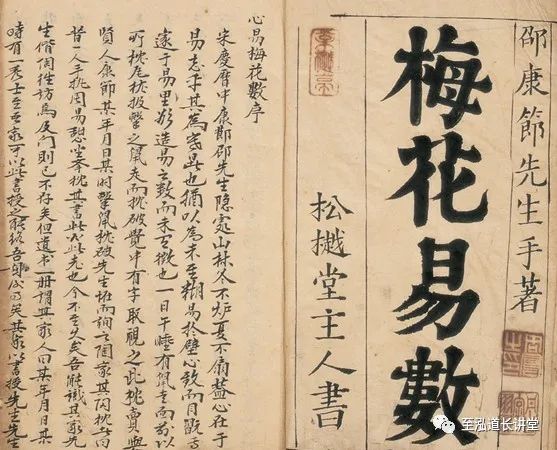 邵康節先生手著
梅花易數
松樾堂主人書
心易梅花數序
宋慶曆中康節邵先生隱處山林冬不炉夏不扇蓋心在于
易忘乎其為寒暑也猶以為未至糊易於壁心致而目玩焉
邃于易理欲造易之数而未有徵也一日午睡有鼠走而前以
所枕瓦枕投擊之鼠走而枕破覺中有字取視之此枕賣與
賢人康節某年月日某時擊鼠枕破先生怪而詢之陶家其陶枕者曰
昔一人手执周易憩坐举枕其書此必此老也今不至久矣吾能識其家先
生偕陶往訪焉及門則已不存矣但遺书一冊謂其家人曰某年月日某
時有一秀士至吾家可以此書授之能終吾身矣其家以書授先生先生
至泓道长讲堂